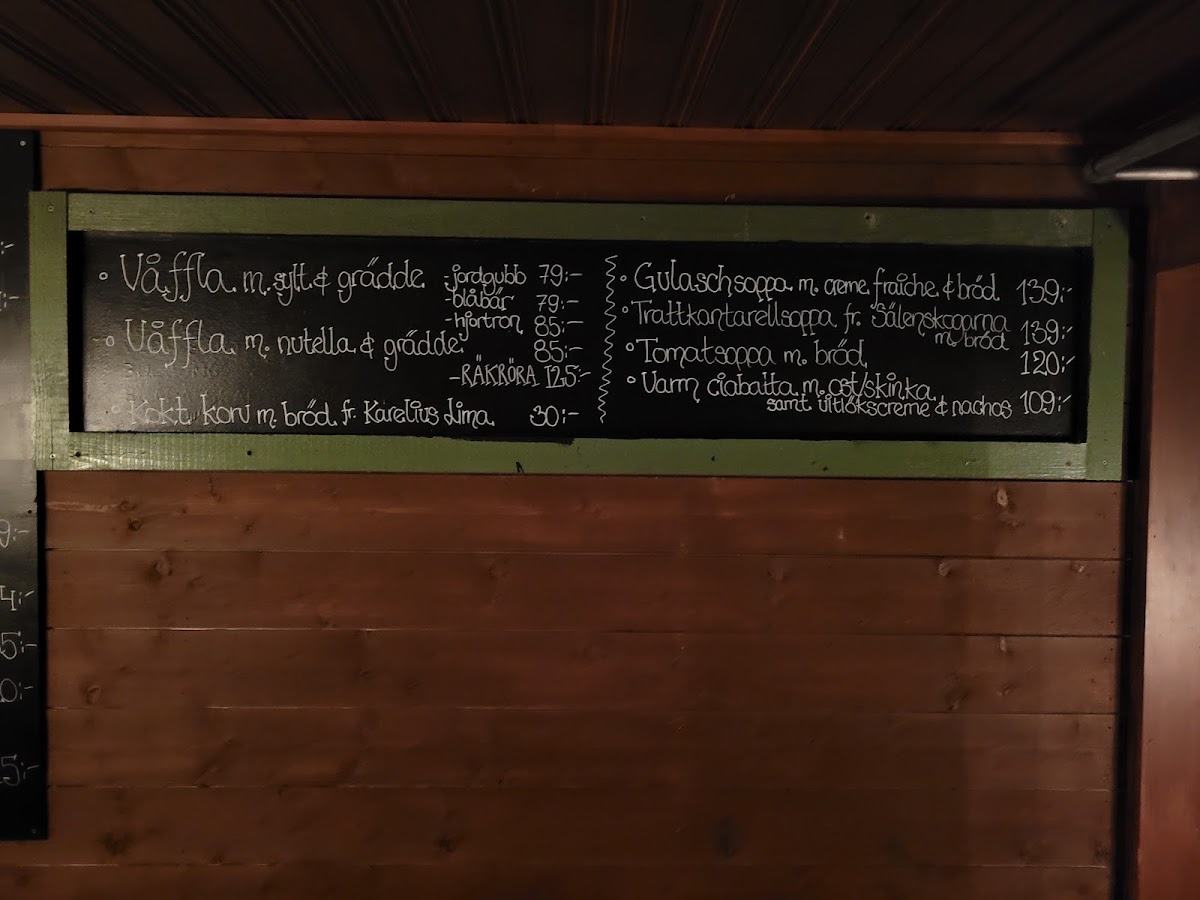 ° Våffla m. sylt & grädde -jordgubb 79:-
-blåbär 79:-
-hjortron 85:-
° Våffla m. nutella & grädde 85:-
-RÄKRÖRA 125:-
° Kokt korv m. bröd fr. Karelius Lima 30:-
° Gulaschsoppa m. creme fraiche & bröd 139:-
° Trattkantarellsoppa fr. Sälenskogarna
m. bröd 139:-
° Tomatsoppa m. bröd 120:-
° Varm ciabatta m. ost/skinka
samt vitlökscreme & nachos 109:-
9:-
4:-
5:-
0:-
5:-